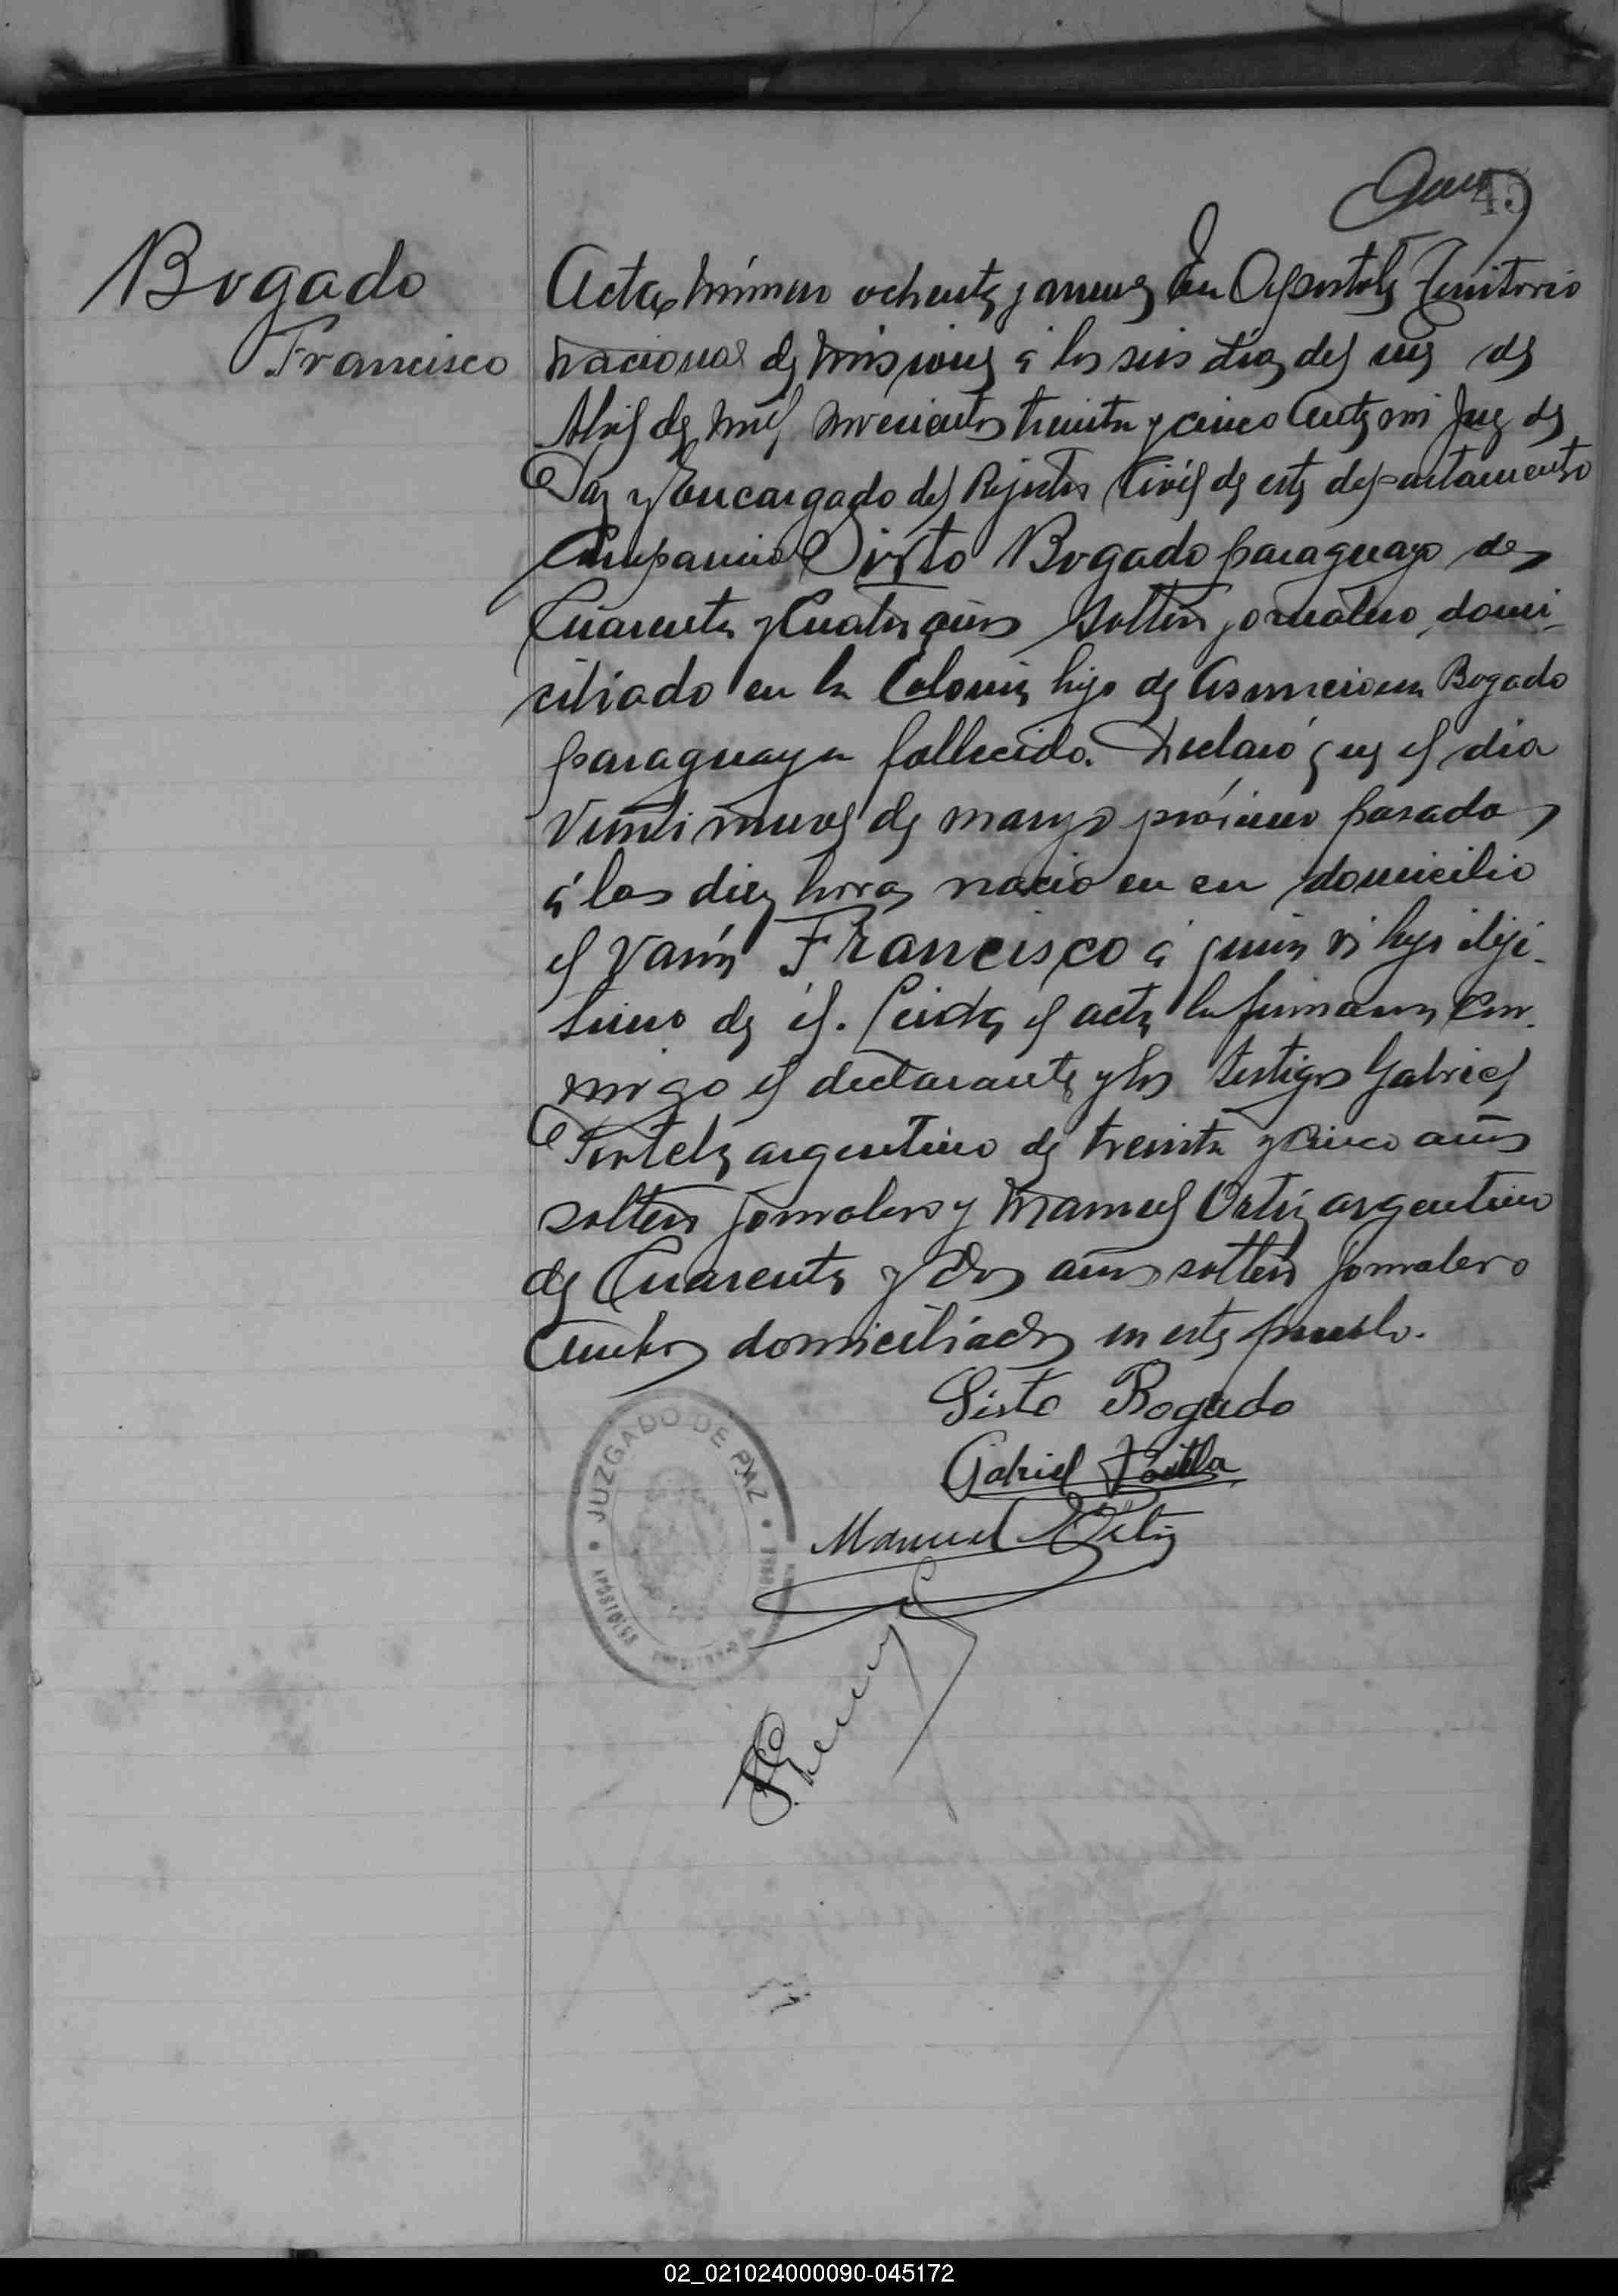 45
Bogado
Francisco
Acta número ochenta y nueve En Apostoles Territorio
Nacional de Misiones á los seis dias del mes de
Abril de mil novecientos treinta y cinco Ante mi Juez de
Paz y Encargado del Rejistro Civil de este departamento
Comparecio Sixto Bogado paraguayo de
Cuarenta y Cuatro años soltero jornalero, domi-
ciliado en la Colonia hijo de Asunciona Bogado
paraguaya fallecida. Declaró que el dia
Veintinueve de marzo próximo pasado
á las diez horas nació en en domicilio
el Varón Francisco á quien es hijo ileji-
timo de él. Leida el acta la firmaron Con-
migo el declarante y los testigos Gabriel
Portela argentino de treinta y cinco años
soltero jornalero y Manuel Ortiz argentino
de Cuarenta y dos años soltero jornalero
Ambos domiciliados en este pueblo.
Sisto Bogado
Gabriel Portela
Manuel Ortiz
JUZGADO DE PAZ
APÓSTOLES
02_021024000090-045172